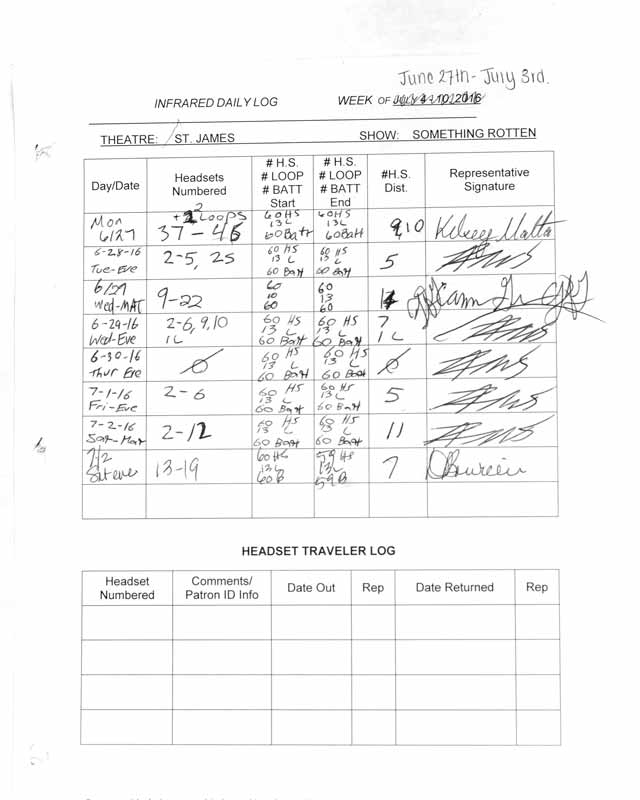 June 27th - July 3rd.
INFRARED DAILY LOG WEEK OF JULY 4-10, 2016
THEATRE: ST. JAMES SHOW: SOMETHING ROTTEN
Day/Date Headsets Numbered # H.S. # LOOP # BATT Start # H.S. # LOOP # BATT End #H.S. Dist. Representative Signature
Mon 6/27 + 2 Loops 37 - 45 60 HS 13 L 60 Batt 60 HS 13 L 60 Batt 9, 10
6-28-16 Tue-Eve 2-5, 25 60 HS 13 L 60 Batt 60 HS 13 L 60 Batt 5
6/29 Wed-MAT 9-22 60 10 60 60 13 60
6-29-16 Wed-Eve 2-6, 9, 10 1L 60 HS 13 L 60 Batt 60 HS 13 L 60 Batt 7 1L
6-30-16 Thur Eve Ø 60 HS 13 L 60 Batt 60 HS 13 L 60 Batt Ø
7-1-16 Fri-Eve 2-6 60 HS 13 L 60 Batt 60 HS 13 L 60 Batt 5
7-2-16 Sat-Mat 2-12 60 HS 13 L 60 Batt 60 HS 13 L 60 Batt 11
7/2 Sat eve 13-19 60 HS 13 L 60 B 59 HS 13 L 59 B 7
HEADSET TRAVELER LOG
Headset Numbered Comments/ Patron ID Info Date Out Rep Date Returned Rep